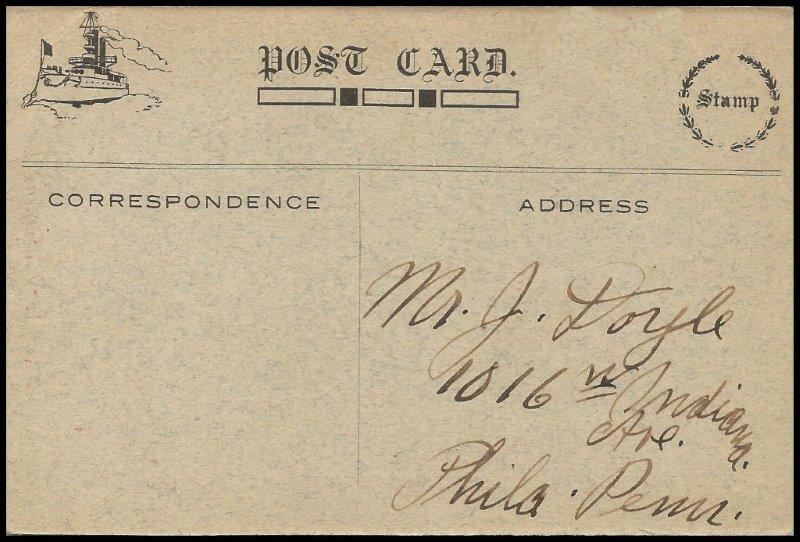 POST CARD.
Stamp
CORRESPONDENCE
ADDRESS
Mr. J. Doyle
1016 W. Indiana.
Ave.
Phila. Penn.